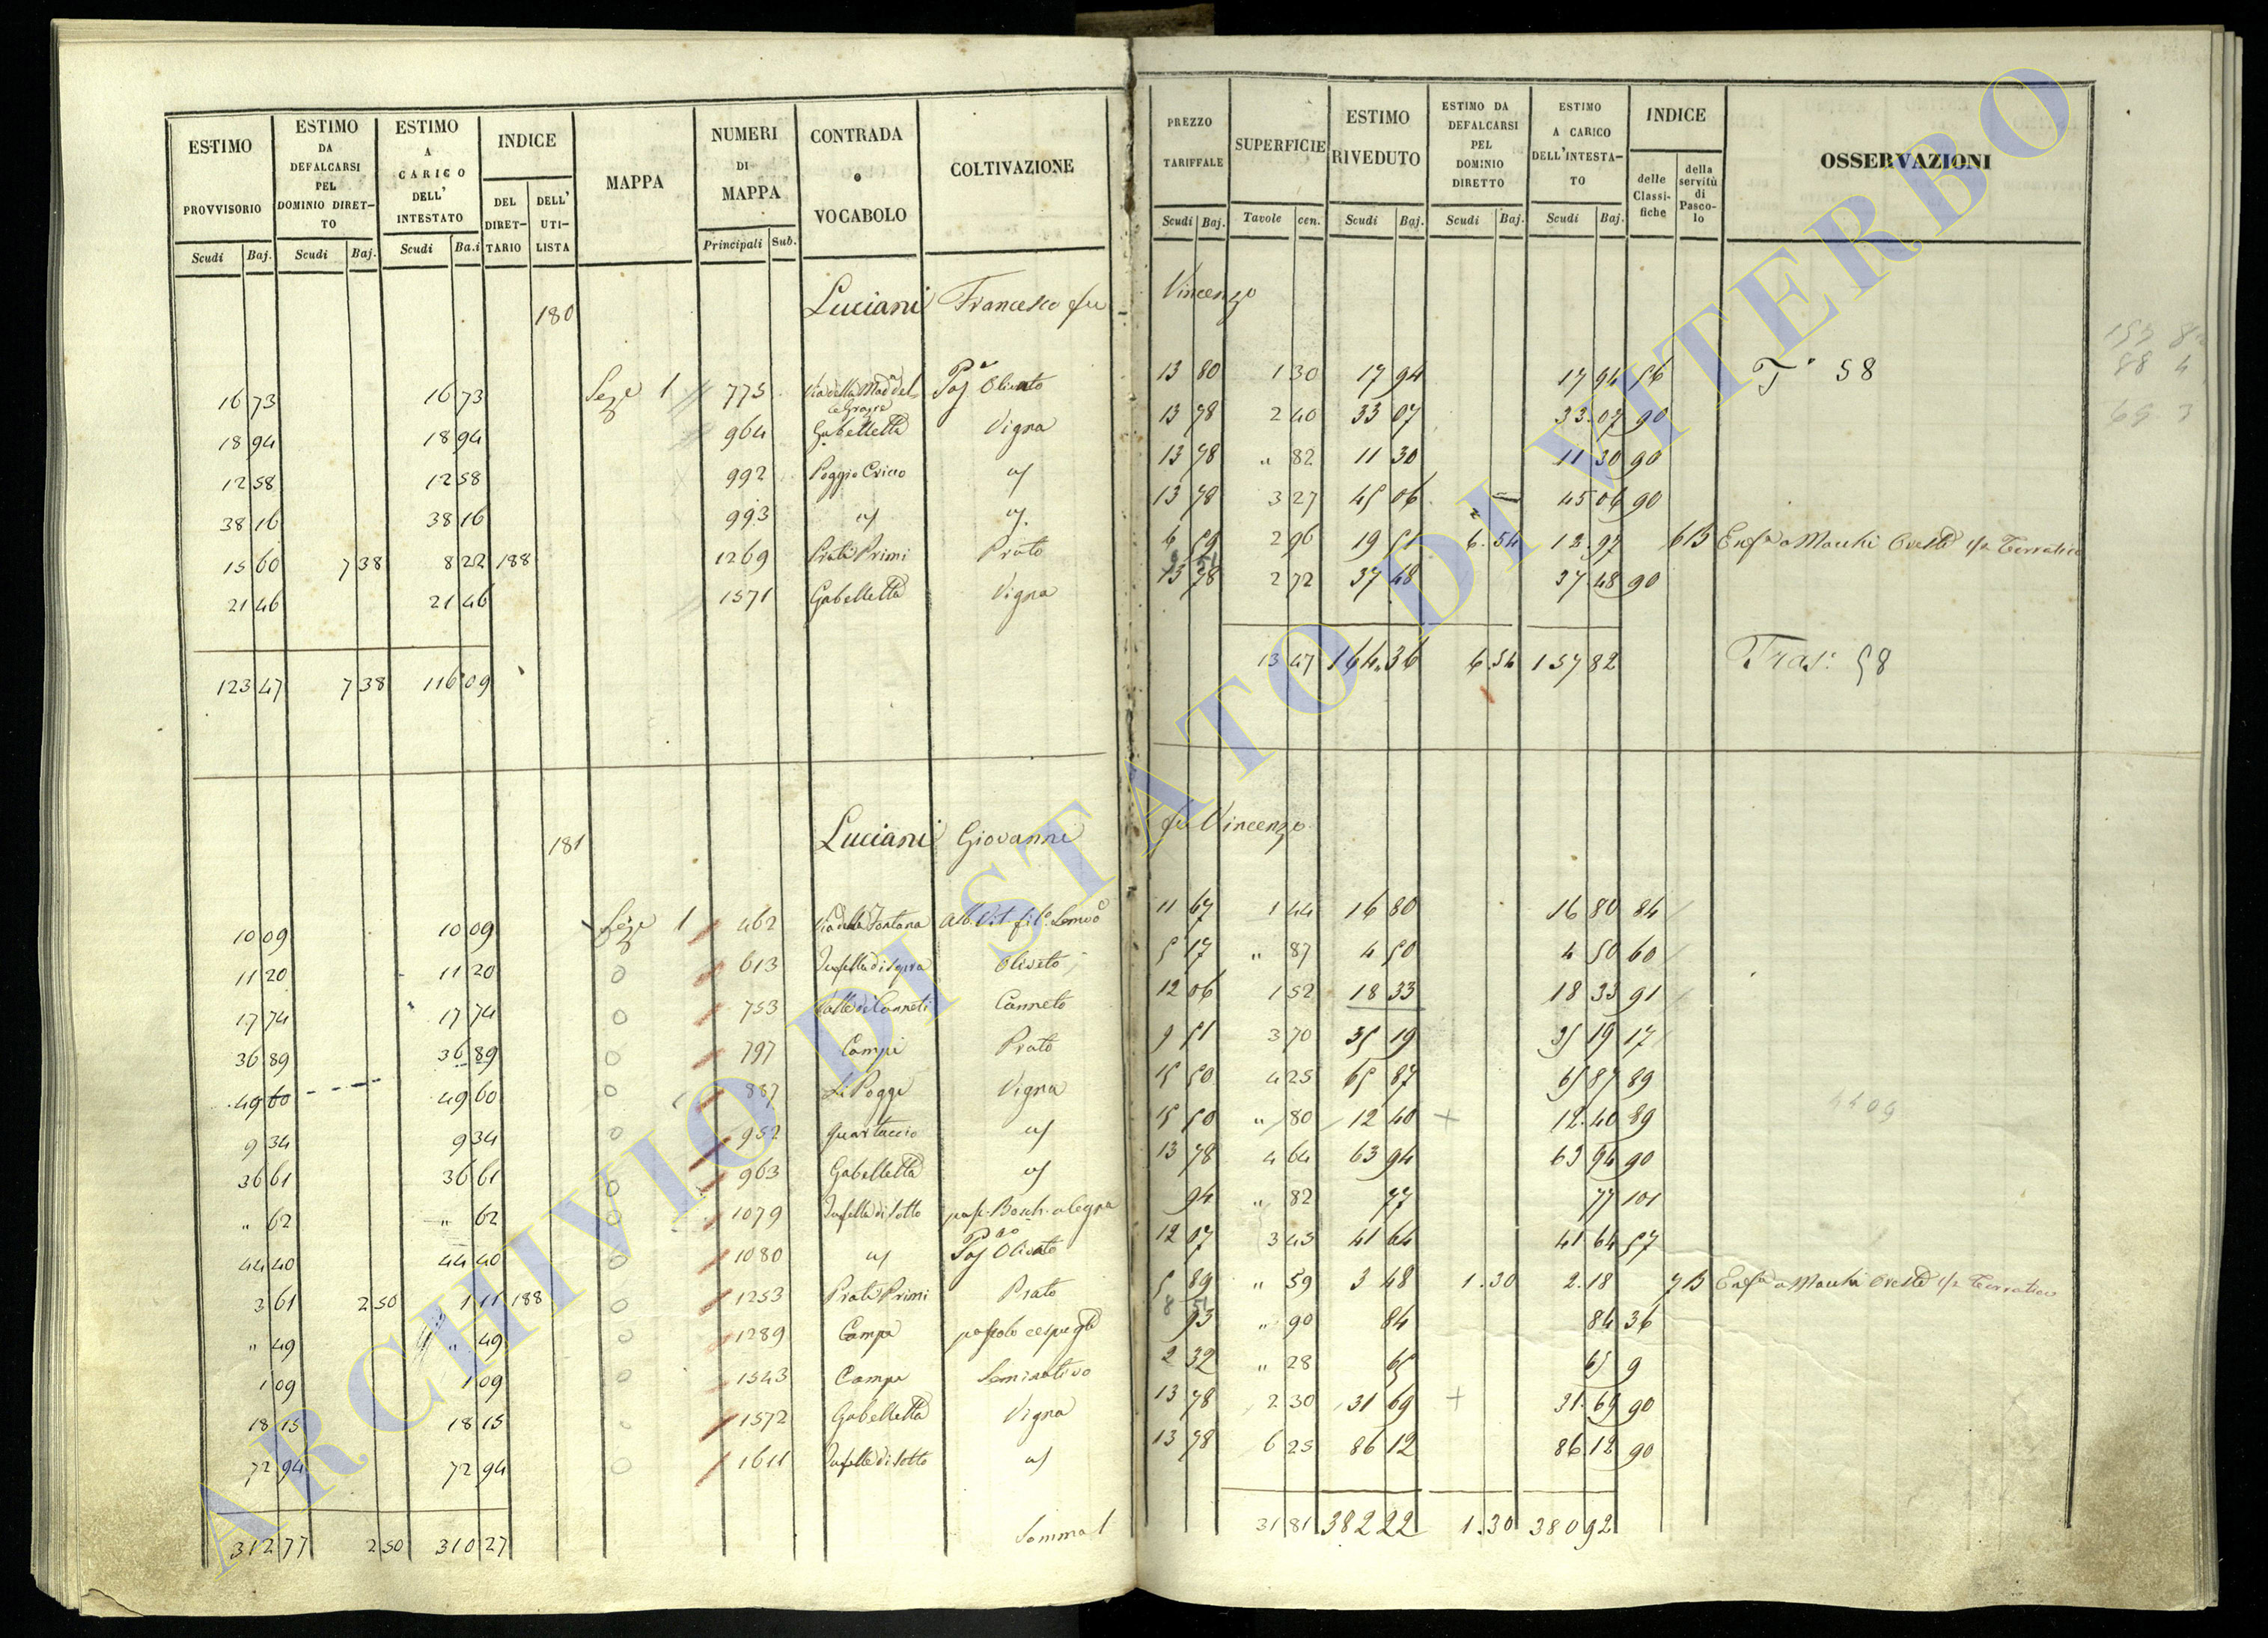 ESTIMO PROVVISORIO Scudi Baj.
ESTIMO DA DEFALCARSI PEL DOMINIO DIRET- TO Scudi Baj.
ESTIMO A CARICO DELL' INTESTATO Scudi Ba.i
INDICE DEL DIRET- TARIO DELL' UTI- LISTA
MAPPA
NUMERI DI MAPPA Principali Sub.
CONTRADA o VOCABOLO
COLTIVAZIONE
PREZZO TARIFFALE Scudi Baj.
SUPERFICIE Tavole cen.
ESTIMO RIVEDUTO Scudi Baj.
ESTIMO DA DEFALCARSI PEL DOMINIO DIRETTO Scudi Baj.
ESTIMO A CARICO DELL'INTESTA- TO Scudi Baj.
INDICE delle Classi- fiche della servitù di Pasco- lo
OSSERVAZIONI
180 Luciani Francesco fu Vincenzo
16 73 16 73 1 775 Olivato 13 80 1 30 17 94 17 94 56 58
18 94 18 94 964 Gabelletta Vigna 13 78 2 40 33 07 33.07 90
12 58 12 58 992 Poggio 13 78 " 82 11 30 11 30 90
38 16 38 16 993 13 78 3 27 45 06 45 06 90
15 60 7 38 8 22 188 1269 Prati Primi Prato 6 59 2 96 19 51 6.54 12.97
21 46 21 46 1571 Gabelletta Vigna 13 78 2 72 37 48 37 48 90
123 47 7 38 116 09 13 47 164.36 6.54 157 82 Tras: 58
181 Luciani Giovanni fu Vincenzo
10 09 10 09 1 462 Via della Fontana 11 67 1 44 16 80 16 80 84
11 20 11 20 613 Oliveto 5 17 " 87 4 50 4 50 60
17 74 17 74 753 Valle di Canneti Canneto 12 06 1 52 18 33 18 33 91
36 89 36 89 797 Campi Prato 9 51 3 70 35 19 35 19 17
49 60 49 60 887 Li Poggi Vigna 15 50 4 25 65 87 65 87 89
9 34 9 34 952 Quartuccio 15 50 " 80 12 40 12.40 89
36 61 36 61 963 Gabelletta 13 78 4 64 63 94 63 94 90
" 62 " 62 1079 94 " 82 77 77 101
44 40 44 40 1080 Olivato 12 07 3 45 41 64 41 64 57
3 61 2 50 1 11 188 1253 Prati Primi Prato 5 89 " 59 3 48 1.30 2.18
" 49 " 49 1289 Campa pascolo cespuglio 93 " 90 84 84 36
1 09 1 09 1543 Campa Seminativo 2 32 " 28 65 65 9
18 15 18 15 1572 Gabelletta Vigna 13 78 2 30 31 69 31.69 90
72 94 72 94 1611 13 78 6 25 86 12 86.12 90
312 77 2 50 310 27 Somma 31 81 382 22 1.30 380 92
ARCHIVIO DI STATO DI VITERBO